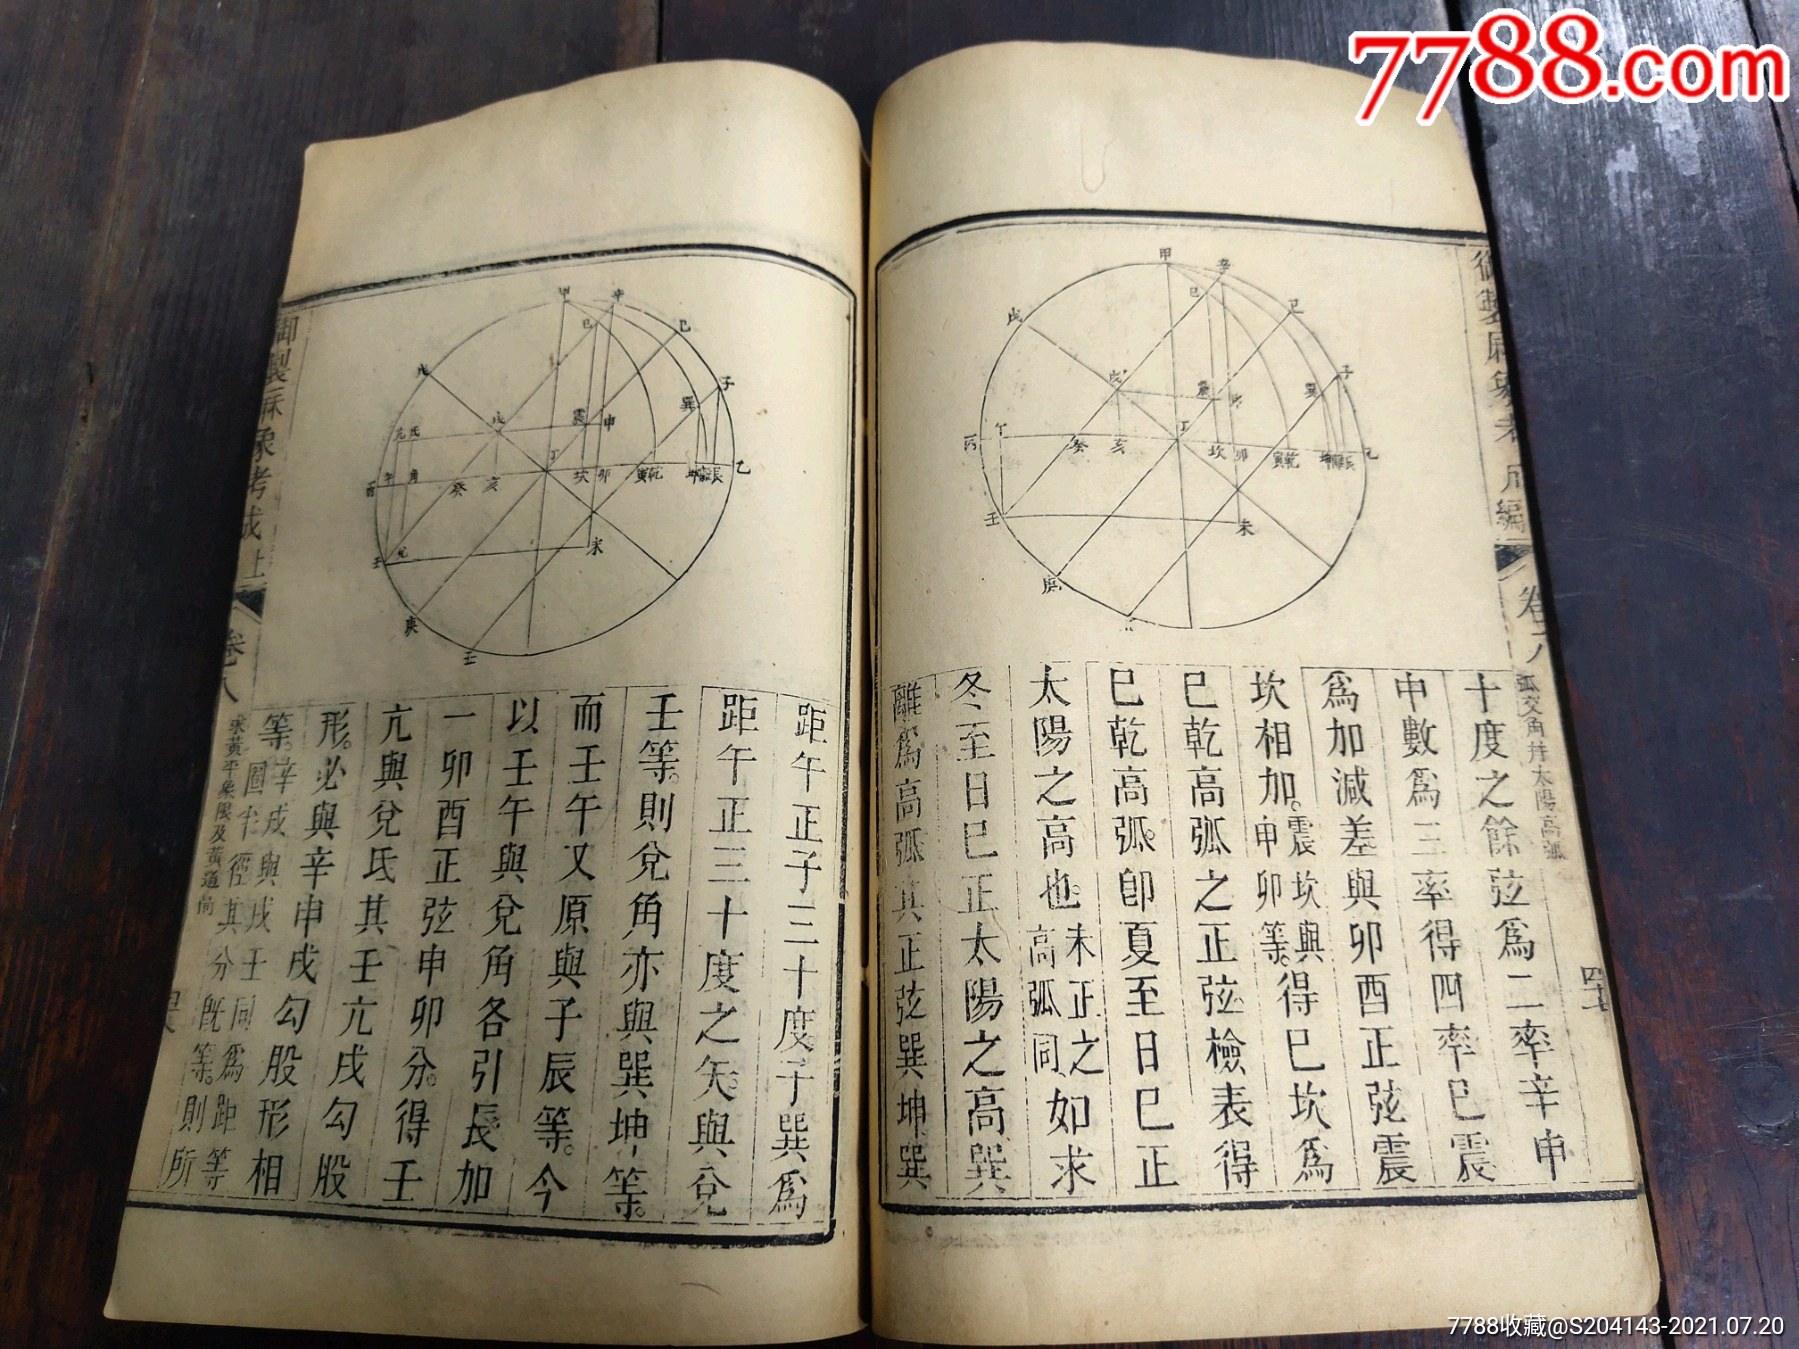 7788.com
御製厤象考成上編
卷八
弧交角并太陽高弧
十度之餘弦為二率辛申
申數為三率得四率巳震
為加減差與卯酉正弦震
坎相加震坎與申卯等得巳坎為
巳乾高弧之正弦檢表得
巳乾高弧即夏至日巳正
太陽之高也未正之高弧同如求
冬至日巳正太陽之高巽
離為高弧其正弦巽坤巽
距午正子三十度子巽為
距午正三十度之矢與兌
壬等則兌角亦與巽坤等
而壬午又原與子辰等今
以壬午與兌角各引長加
一卯酉正弦申卯分得壬
亢與兌氐其壬亢戌勾股
形必與辛申戌勾股形相
等辛戌與戌壬同為圜半徑其分既等則所
御製厤象考成上
卷八
求黃平象限及黃道高
7788收藏@S204143-2021.07.20